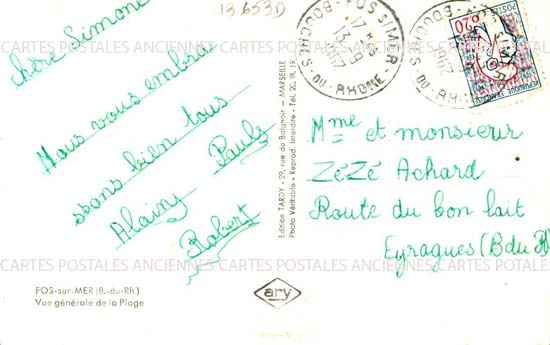 13 653D
chère Simone
Nous vous embras
ssons bien tous
Alainy Pauls
Robert
FOS-sur-MER (B.-du-Rh.)
Vue générale de la Plage
Edition TARDY - 29, rue du Baignoir - MARSEILLE
Photo Véritable - Reprod. Interdite - Tél. 20.91.19
ary
FOS S/MER
17 H
13 - 9
BOUCHES-DU-RHONE
0,20
POSTES
Mme et monsieur
ZéZé Achard
Route du bon lait
Eyragues (B du R)
CARTES POSTALES ANCIENNES CARTES POSTALES ANCIENNES CARTES POSTALES
CARTES POSTALES ANCIENNES CARTES POSTALES ANCIENNES CARTES POTALES